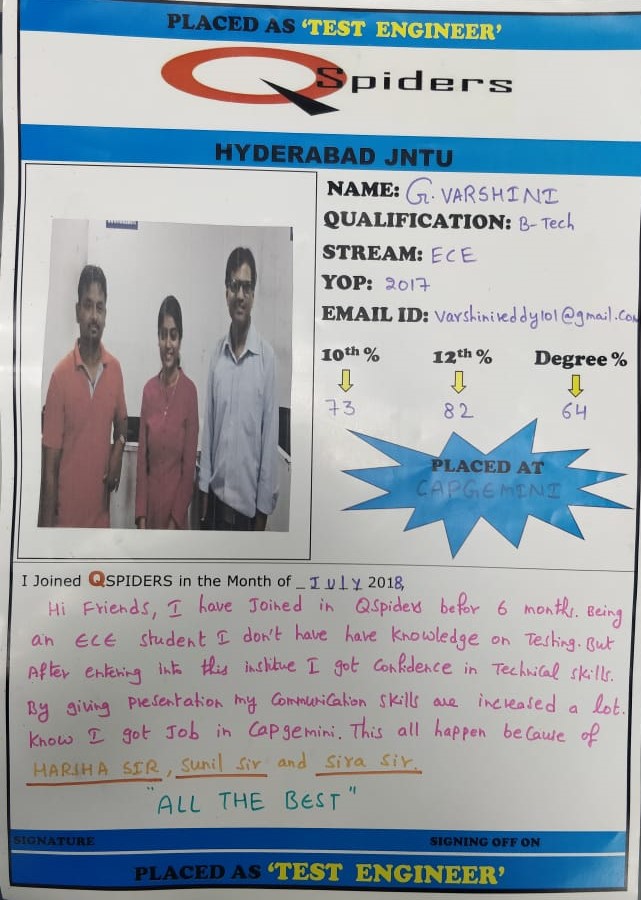 PLACED AS ‘TEST ENGINEER’
QSpiders
HYDERABAD JNTU
NAME: G. VARSHINI
QUALIFICATION: B-Tech
STREAM: ECE
YOP: 2017
EMAIL ID: varshinireddy101@gmail.com
10th % 12th % Degree %
73 82 64
PLACED AT
CAPGEMINI
I Joined QSPIDERS in the Month of _JULY 2018,
Hi Friends, I have Joined in QSpiders befor 6 months. Being
an ECE student I don't have have knowledge on Testing. But
After entering into this institue I got Confidence in Technical skills.
By giving presentation my Communication skills are increased a lot.
Know I got Job in Capgemini. This all happen because of
HARSHA SIR, Sunil Sir and Siva Sir.
"ALL THE BEST"
SIGNATURE SIGNING OFF ON
PLACED AS ‘TEST ENGINEER’